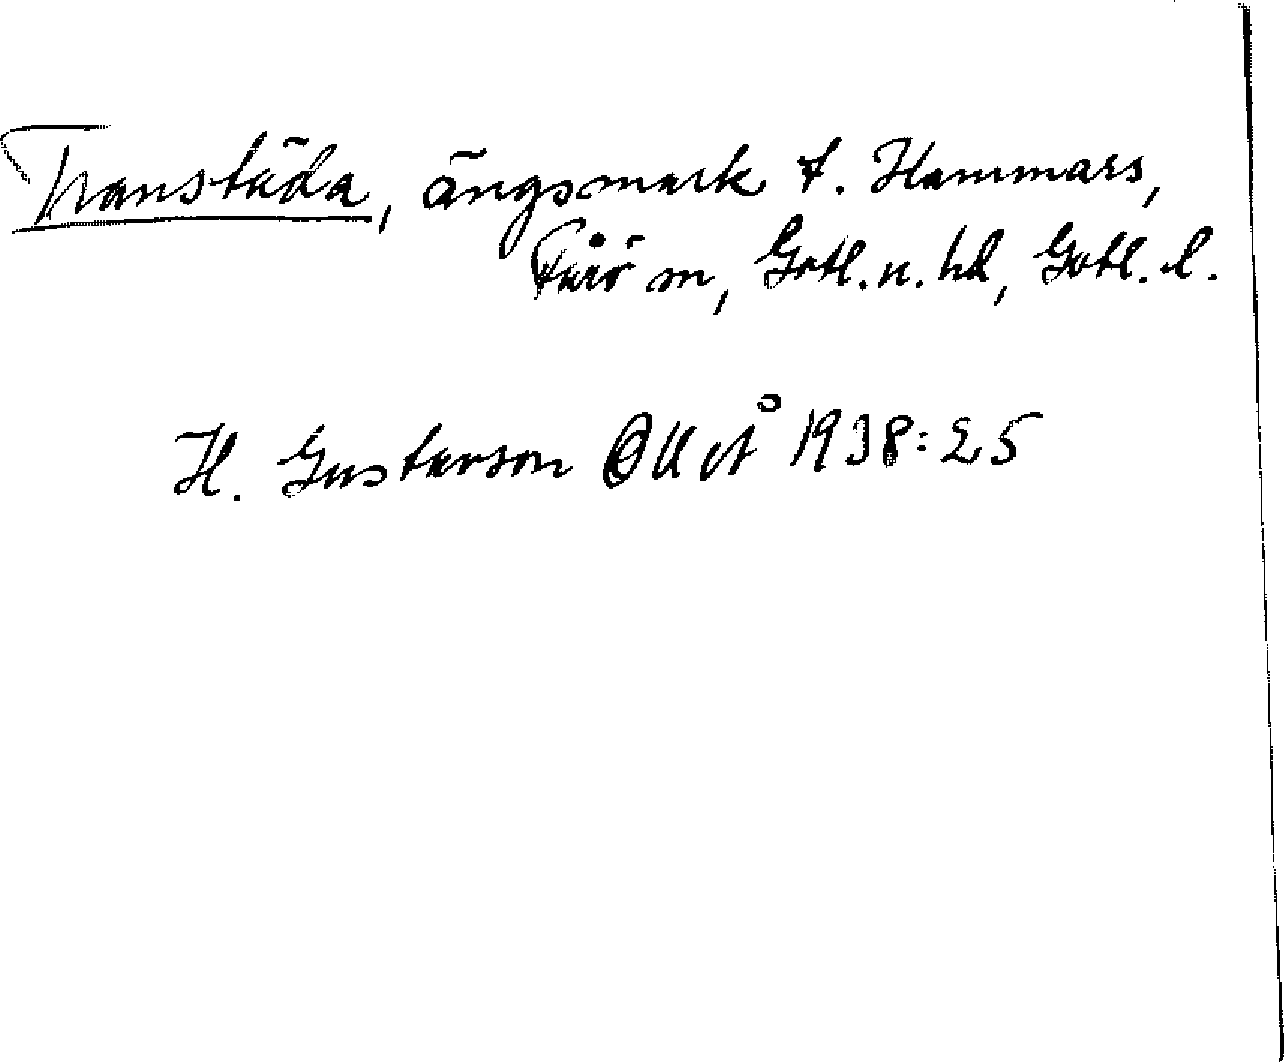 Transtäda, ängsmark t. Hammars,
Fårö sn, Gotl. n. hd, Gotl. l.
H. Gustavson OUÅ 1938:25